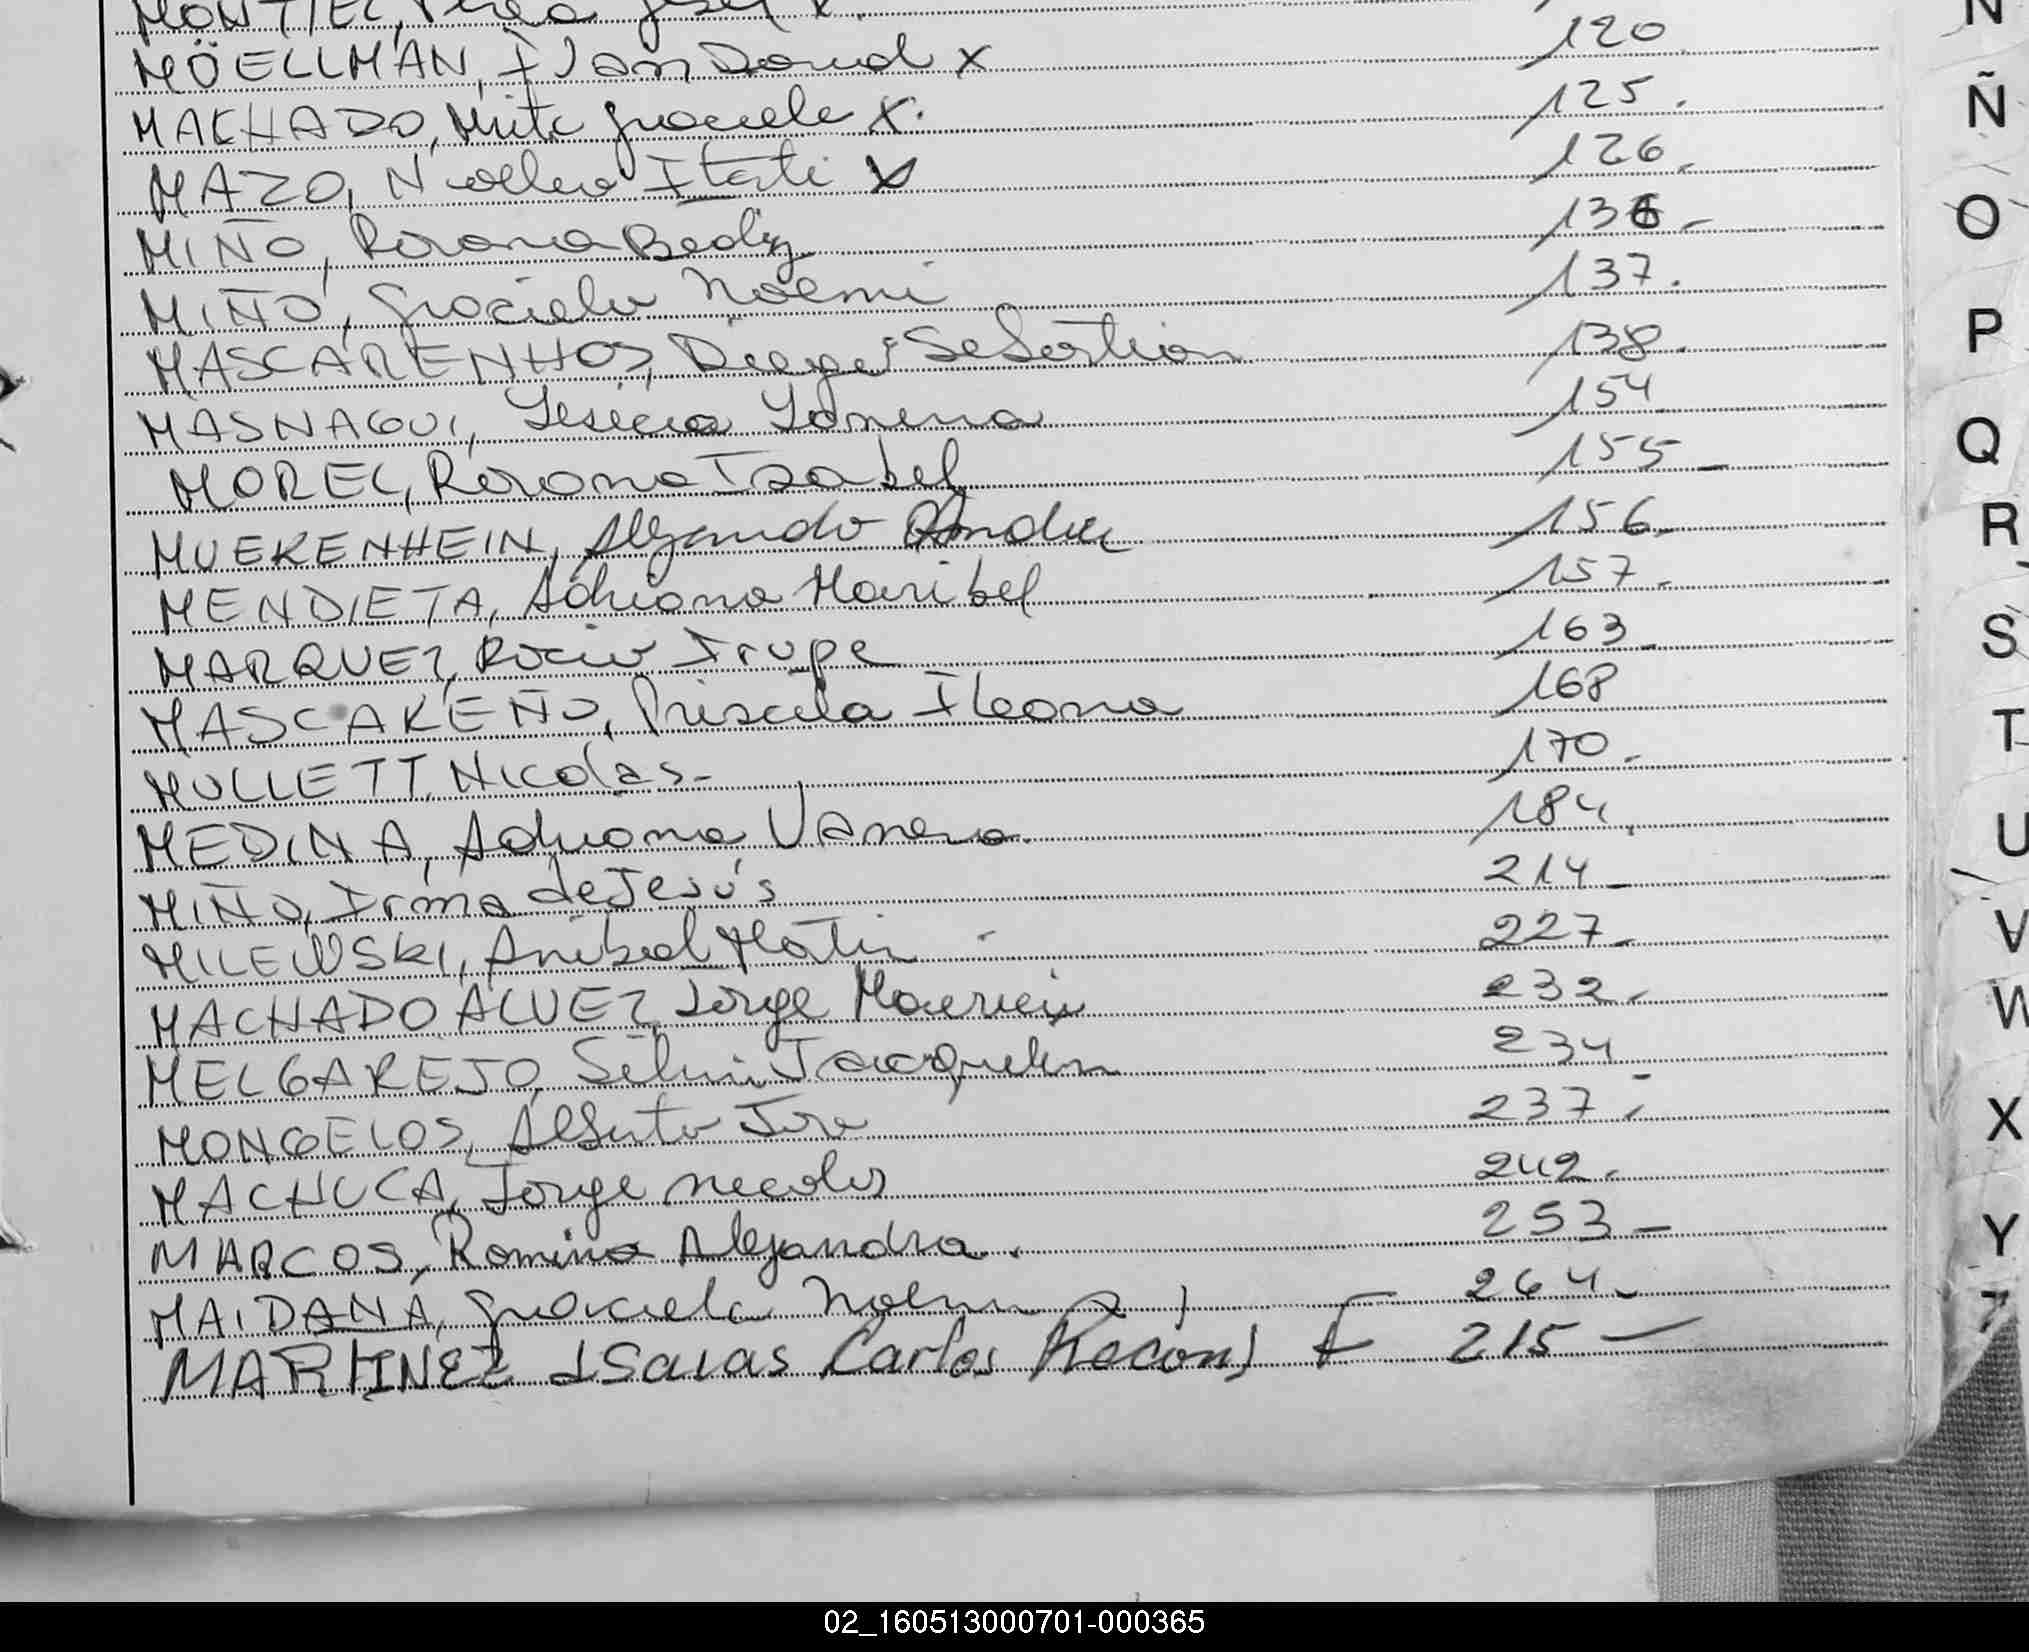 MONTIEL,
120
MÖELLMAN, Iván David x
125.
MACHADO, Mirta Graciela x.
126.
MAZO, Itati x
136-
MIÑO, Rosana Beatriz
137.
MIÑO, Graciela Noemi
138.
MASCARENHOS, Diego Sebastian
154
MASNAGUI, Yesica Yanina
155-
MOREL, Rosana Isabel
156.
MUEKENHEIN, Alejandro
157.
MENDIETA, Adriana Maribel
163-
MARQUEZ, Rocio Irupe
168
MASCAREÑO, Priscila Ileana
170.
MULLETT, Nicolas-
184.
MEDINA, Adriana Vanesa.
214-
MIÑO, Irma de Jesús
227-
MILEWSKI, Anibal Matin
232.
MACHADO ALVEZ, Jorge Mauricio
234
MELGAREJO, Silvia Jacquelin
237-
MONGELOS, Alberto Jose
242.
MACHUCA, Jorge Nicolas
253-
MARCOS, Romina Alejandra.
264-
MAIDANA, Graciela Noemi
MARTINEZ Isaias Carlos 215-
N
Ñ
O
P
Q
R
S
T
U
V
W
X
Y
Z
02_160513000701-000365